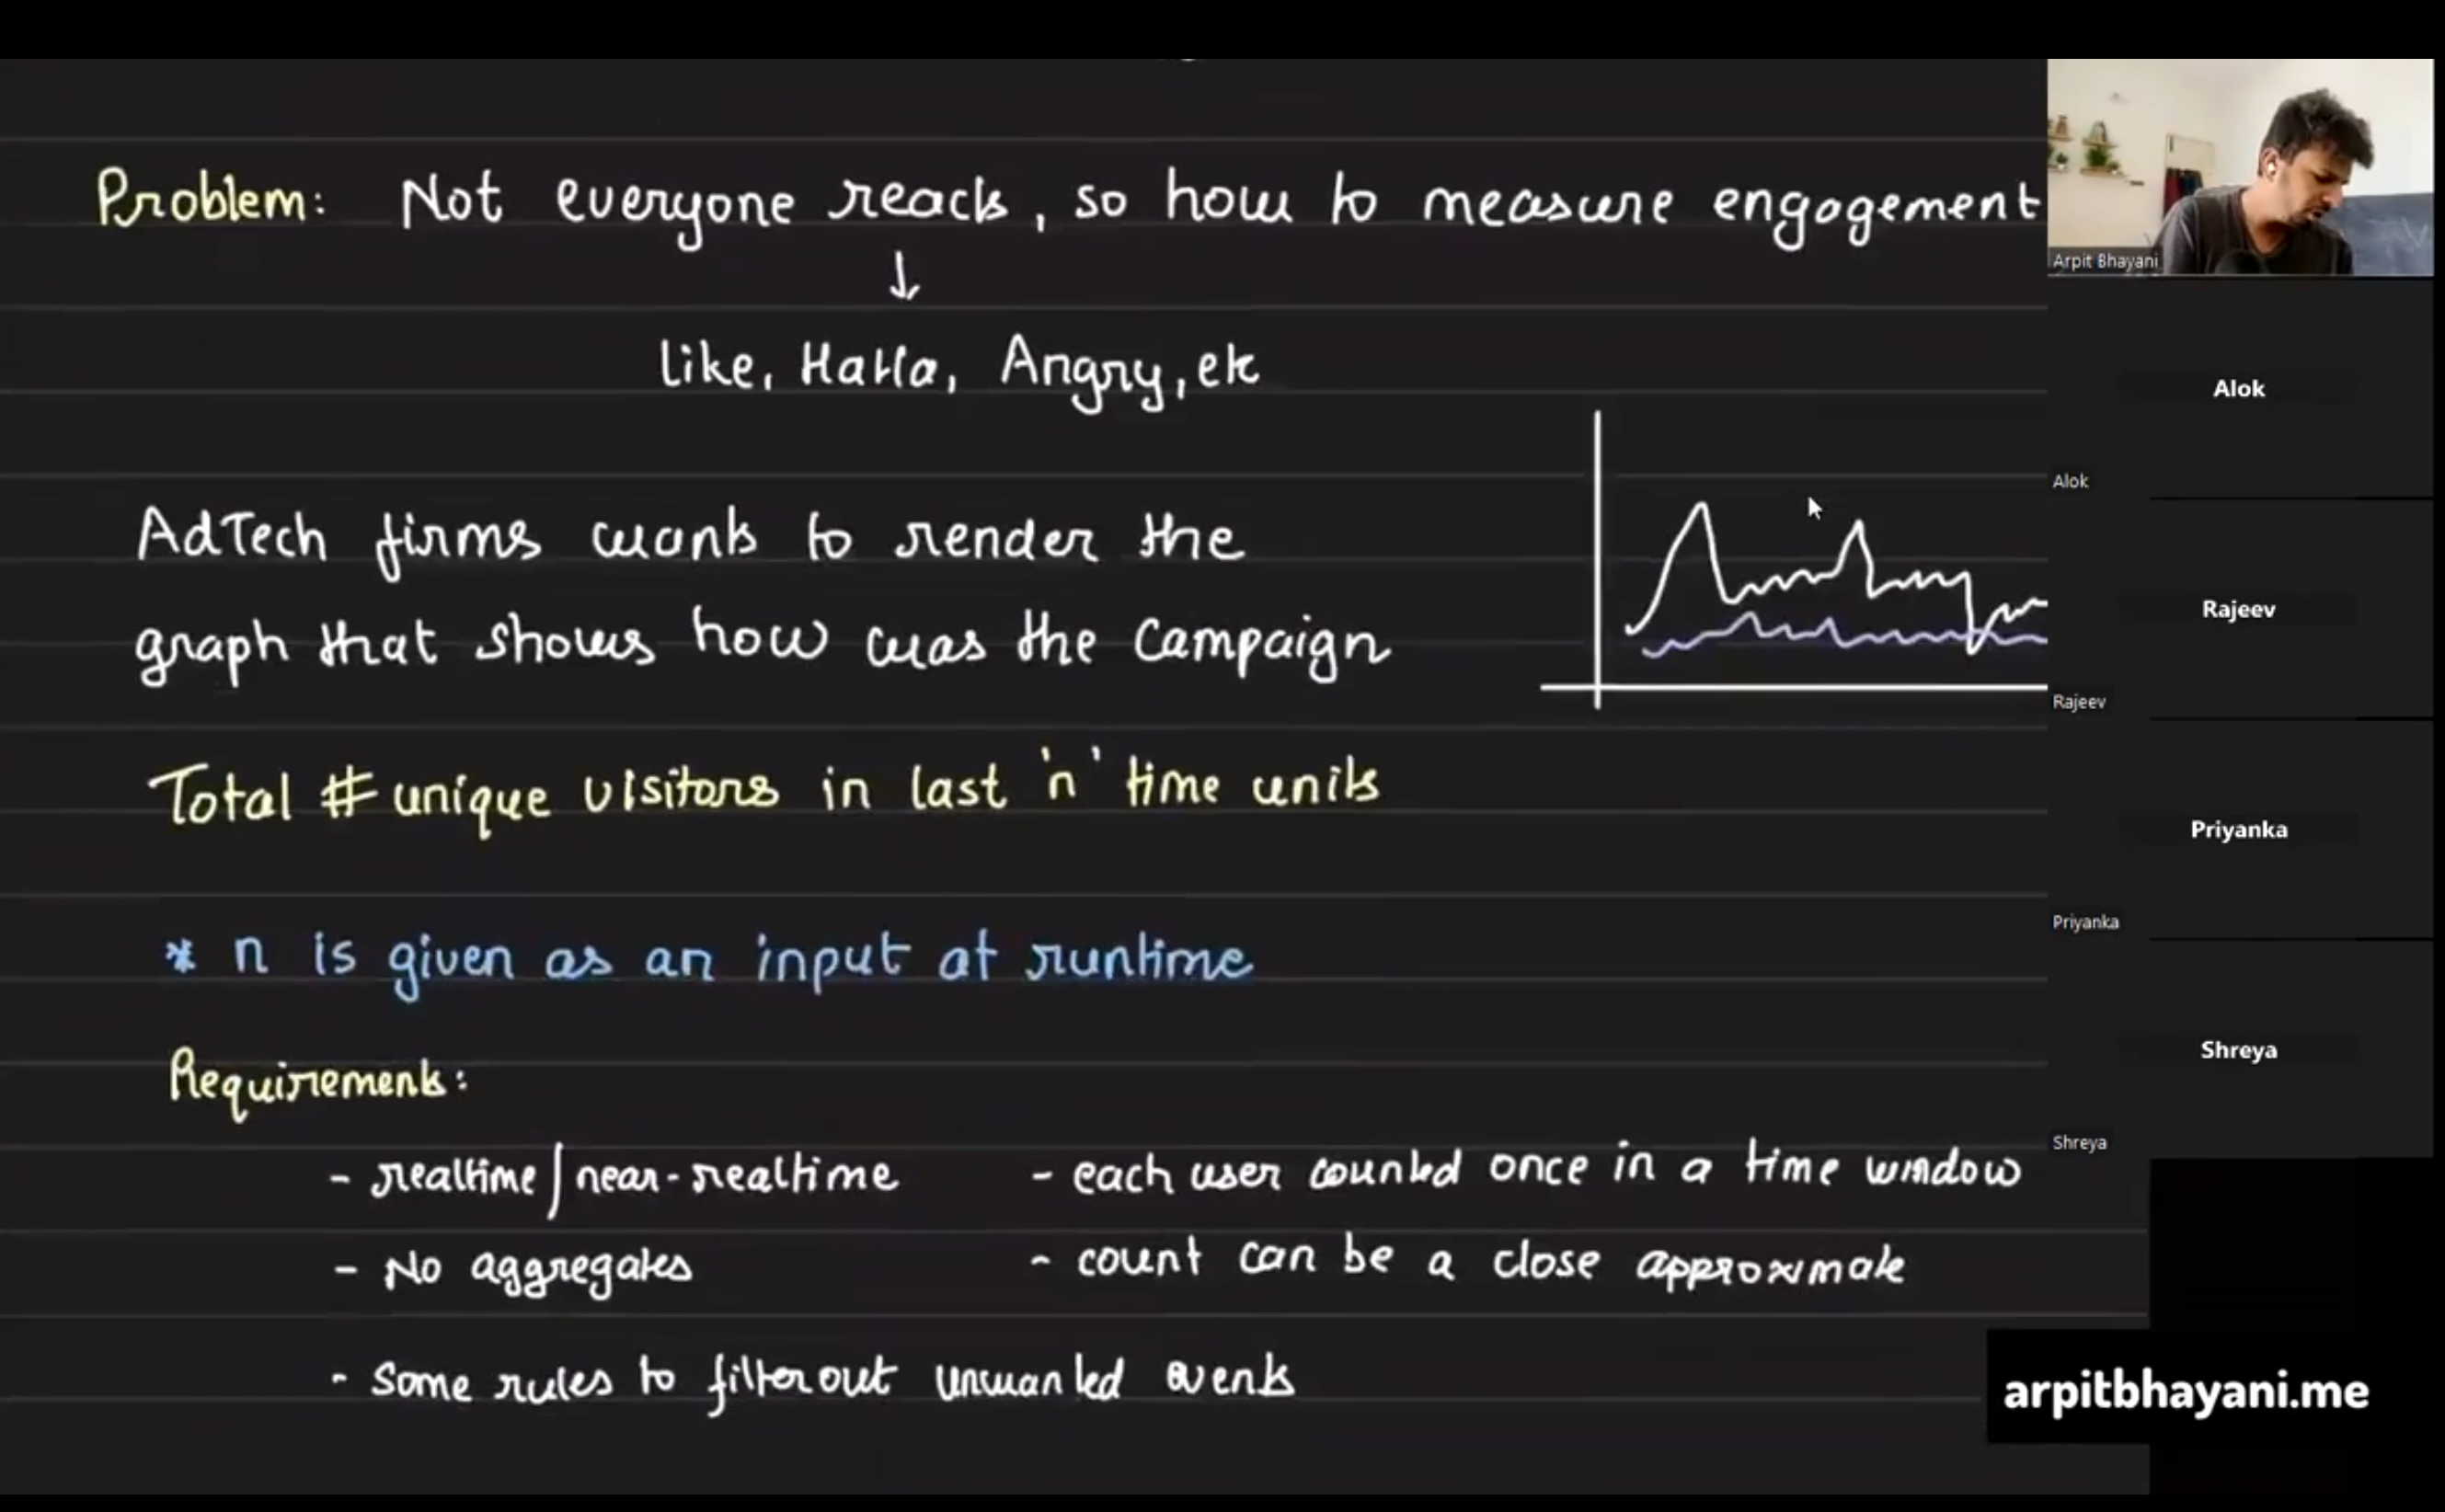 Problem: Not everyone reacts, so how to measure engagement
↓
like, HaHa, Angry, etc
AdTech firms wants to render the
graph that shows how was the Campaign
Total # unique visitors in last 'n' time units
* n is given as an input at runtime
Requirements:
- realtime/near-realtime
- each user counted once in a time window
- No aggregates
- count can be a close approximate
- some rules to filter out unwanted events
Arpit Bhayani
Alok
Alok
Rajeev
Rajeev
Priyanka
Priyanka
Shreya
Shreya
arpitbhayani.me